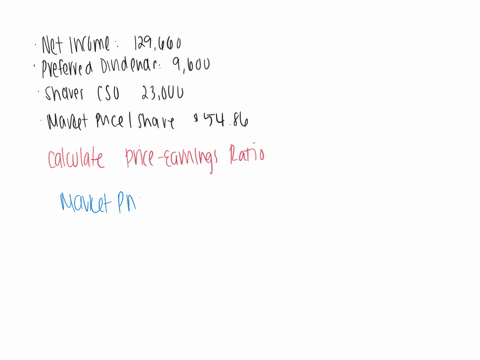 · Net Income: 129,660
· Preferred Dividend: 9,600
· Shares CSO 23,000
· Market Price/Share $54.86
Calculate Price-Earnings Ratio
Market Pri